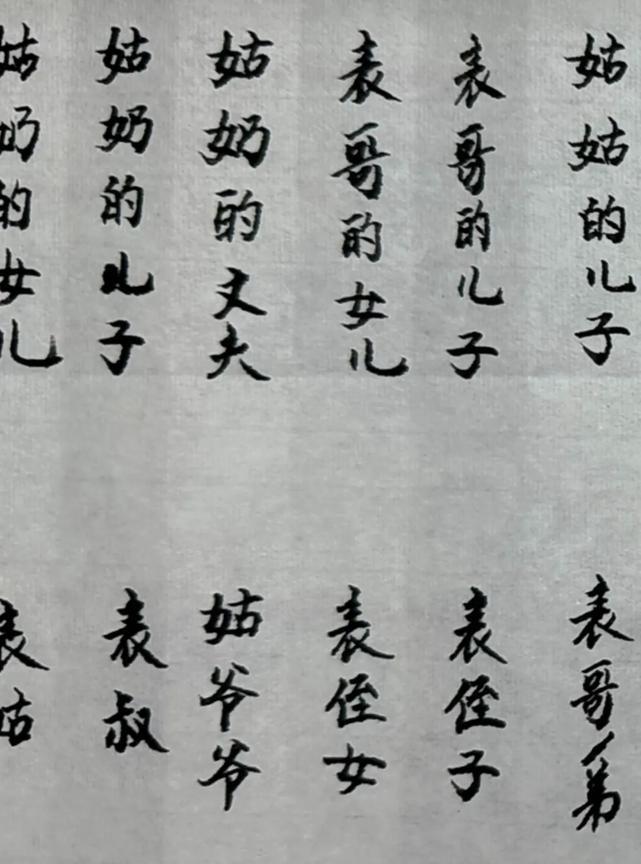 姑姑的儿子
表哥弟
表哥的儿子
表侄子
表哥的女儿
表侄女
姑奶的丈夫
姑爷爷
姑奶的儿子
表叔
姑奶的女儿
表姑